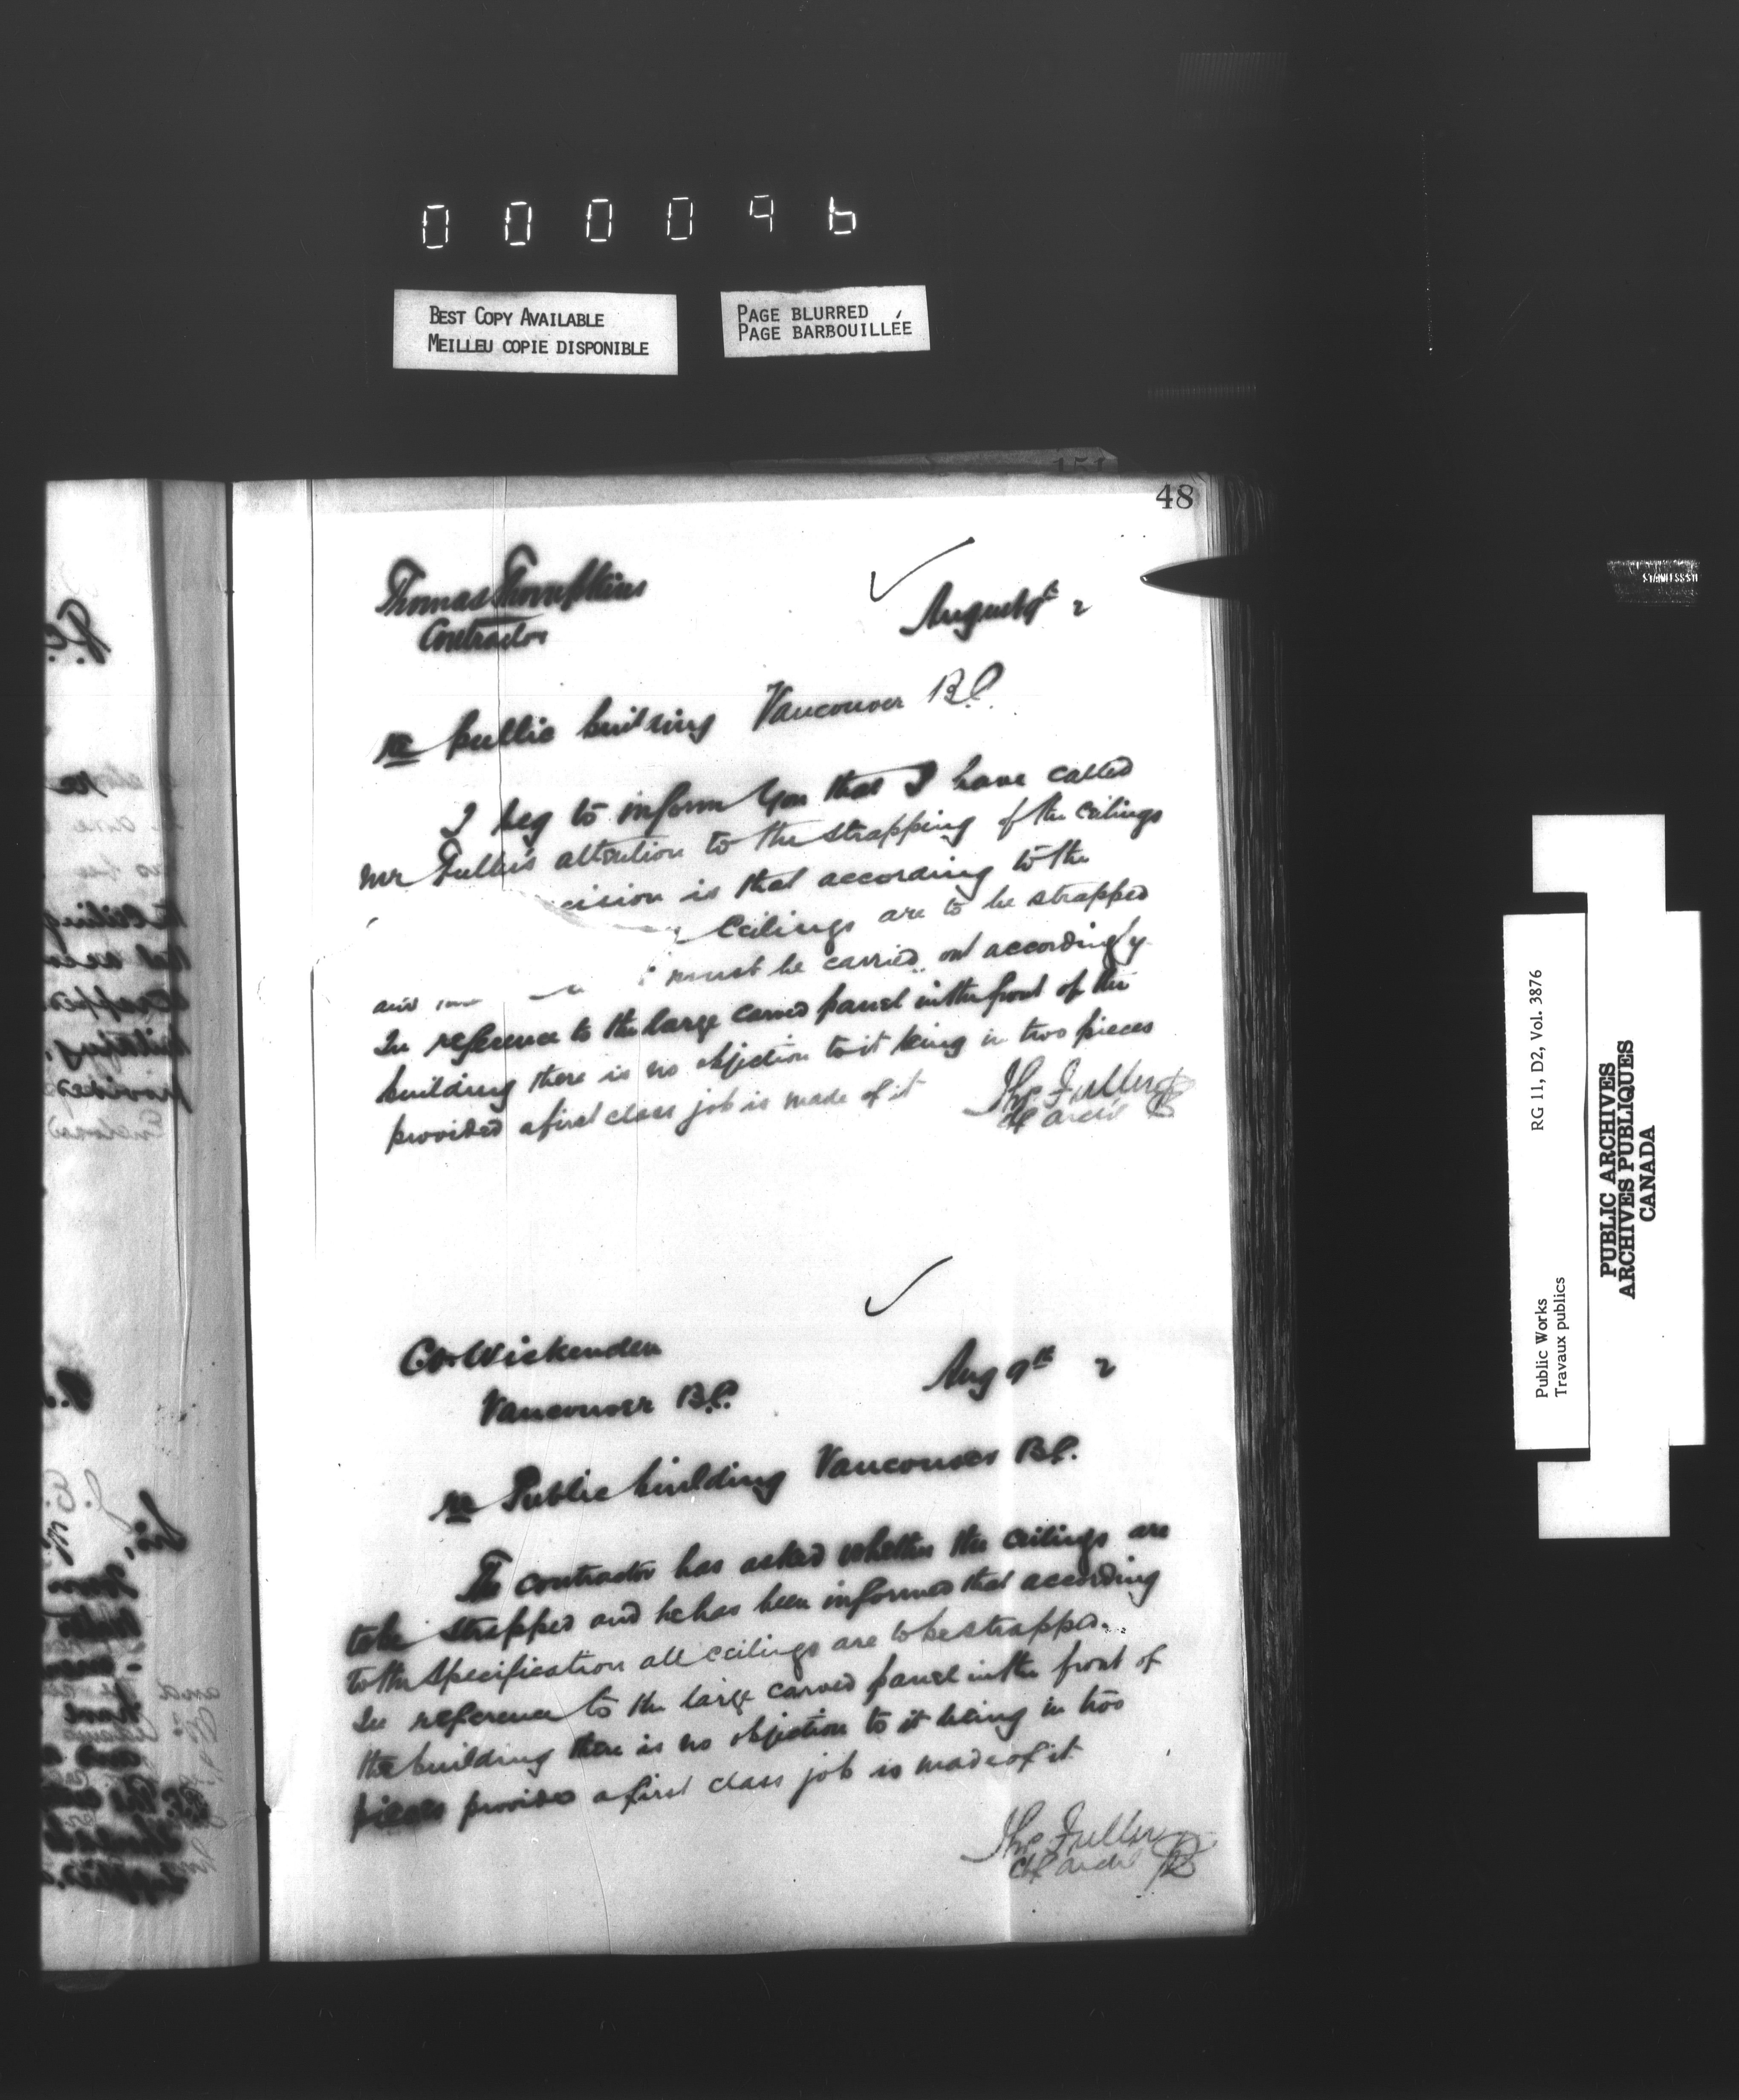 000096
BEST COPY AVAILABLE
MEILLEU COPIE DISPONIBLE
PAGE BLURRED
PAGE BARBOUILLÉE
151
48
Thomas
Contractor
August 9th 2
re public building Vancouver B.C.
I beg to inform you that I have called
Mr Fuller's attention to the strapping of the ceilings
cision is that according to the
Ceilings are to be strapped
and must be carried out accordingly
In reference to the large carved panel in the front of the
building there is no objection to it being in two pieces
provided a first class job is made of it
Thos Fuller
Ch Archt
Wickenden
Vancouver B.C.
Aug 9th 2
re Public building Vancouver B.C.
The contractor has asked whether the ceilings are
to be strapped and he has been informed that according
to the specification all ceilings are to be strapped.
In reference to the large carved panel in the front of
the building there is no objection to it being in two
pieces provided a first class job is made of it
Thos Fuller
Ch Archt
Public Works
Travaux publics
RG 11, D2, Vol. 3876
PUBLIC ARCHIVES
ARCHIVES PUBLIQUES
CANADA